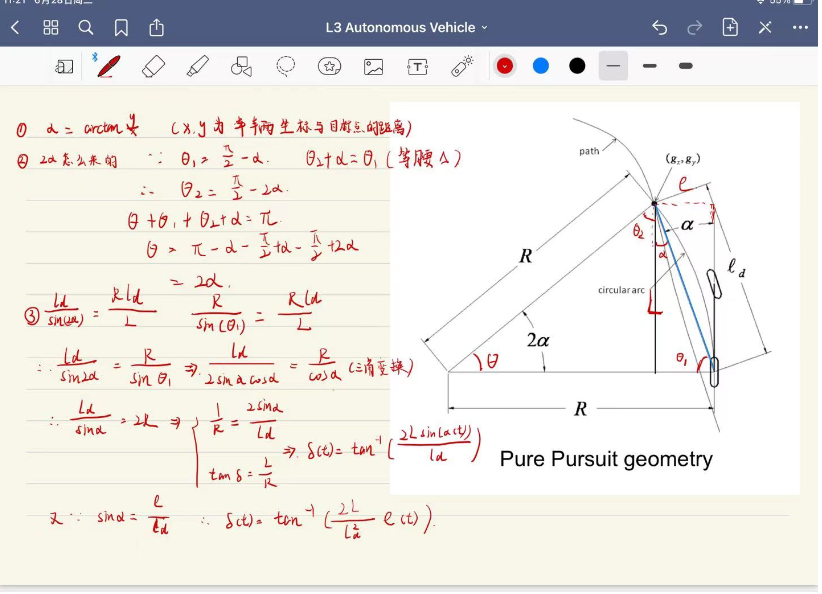 L3 Autonomous Vehicle
55%
① α = arctan y/x （x, y 为 车辆 坐标与目标点的距离）
② 2α 怎么来的 ∵ θ₁ = π/2 - α. θ₂+α = θ₁（等腰△）
∴ θ₂ = π/2 - 2α.
θ + θ₁ + θ₂ + α = π.
θ = π - α - π/2 + α - π/2 + 2α
= 2α.
③ ld/sin(2α) = Rld/L R/sin(θ₁) = Rld/L
∴ ld/sin2α = R/sinθ₁ ⇒ ld/2sinαcosα = R/cosα （三角变换）
∴ ld/sinα = 2R ⇒ { 1/R = 2sinα/ld
tanδ = L/R
⇒ δ(t) = tan⁻¹(2Lsin(α(t))/ld)
又∵ sinα = e/ld ∴ δ(t) = tan⁻¹(2L/ld² e(t)).
path
(gₓ,gᵧ)
e
θ₂
α
α
R
ld
circular arc
2α
θ
θ₁
R
Pure Pursuit geometry